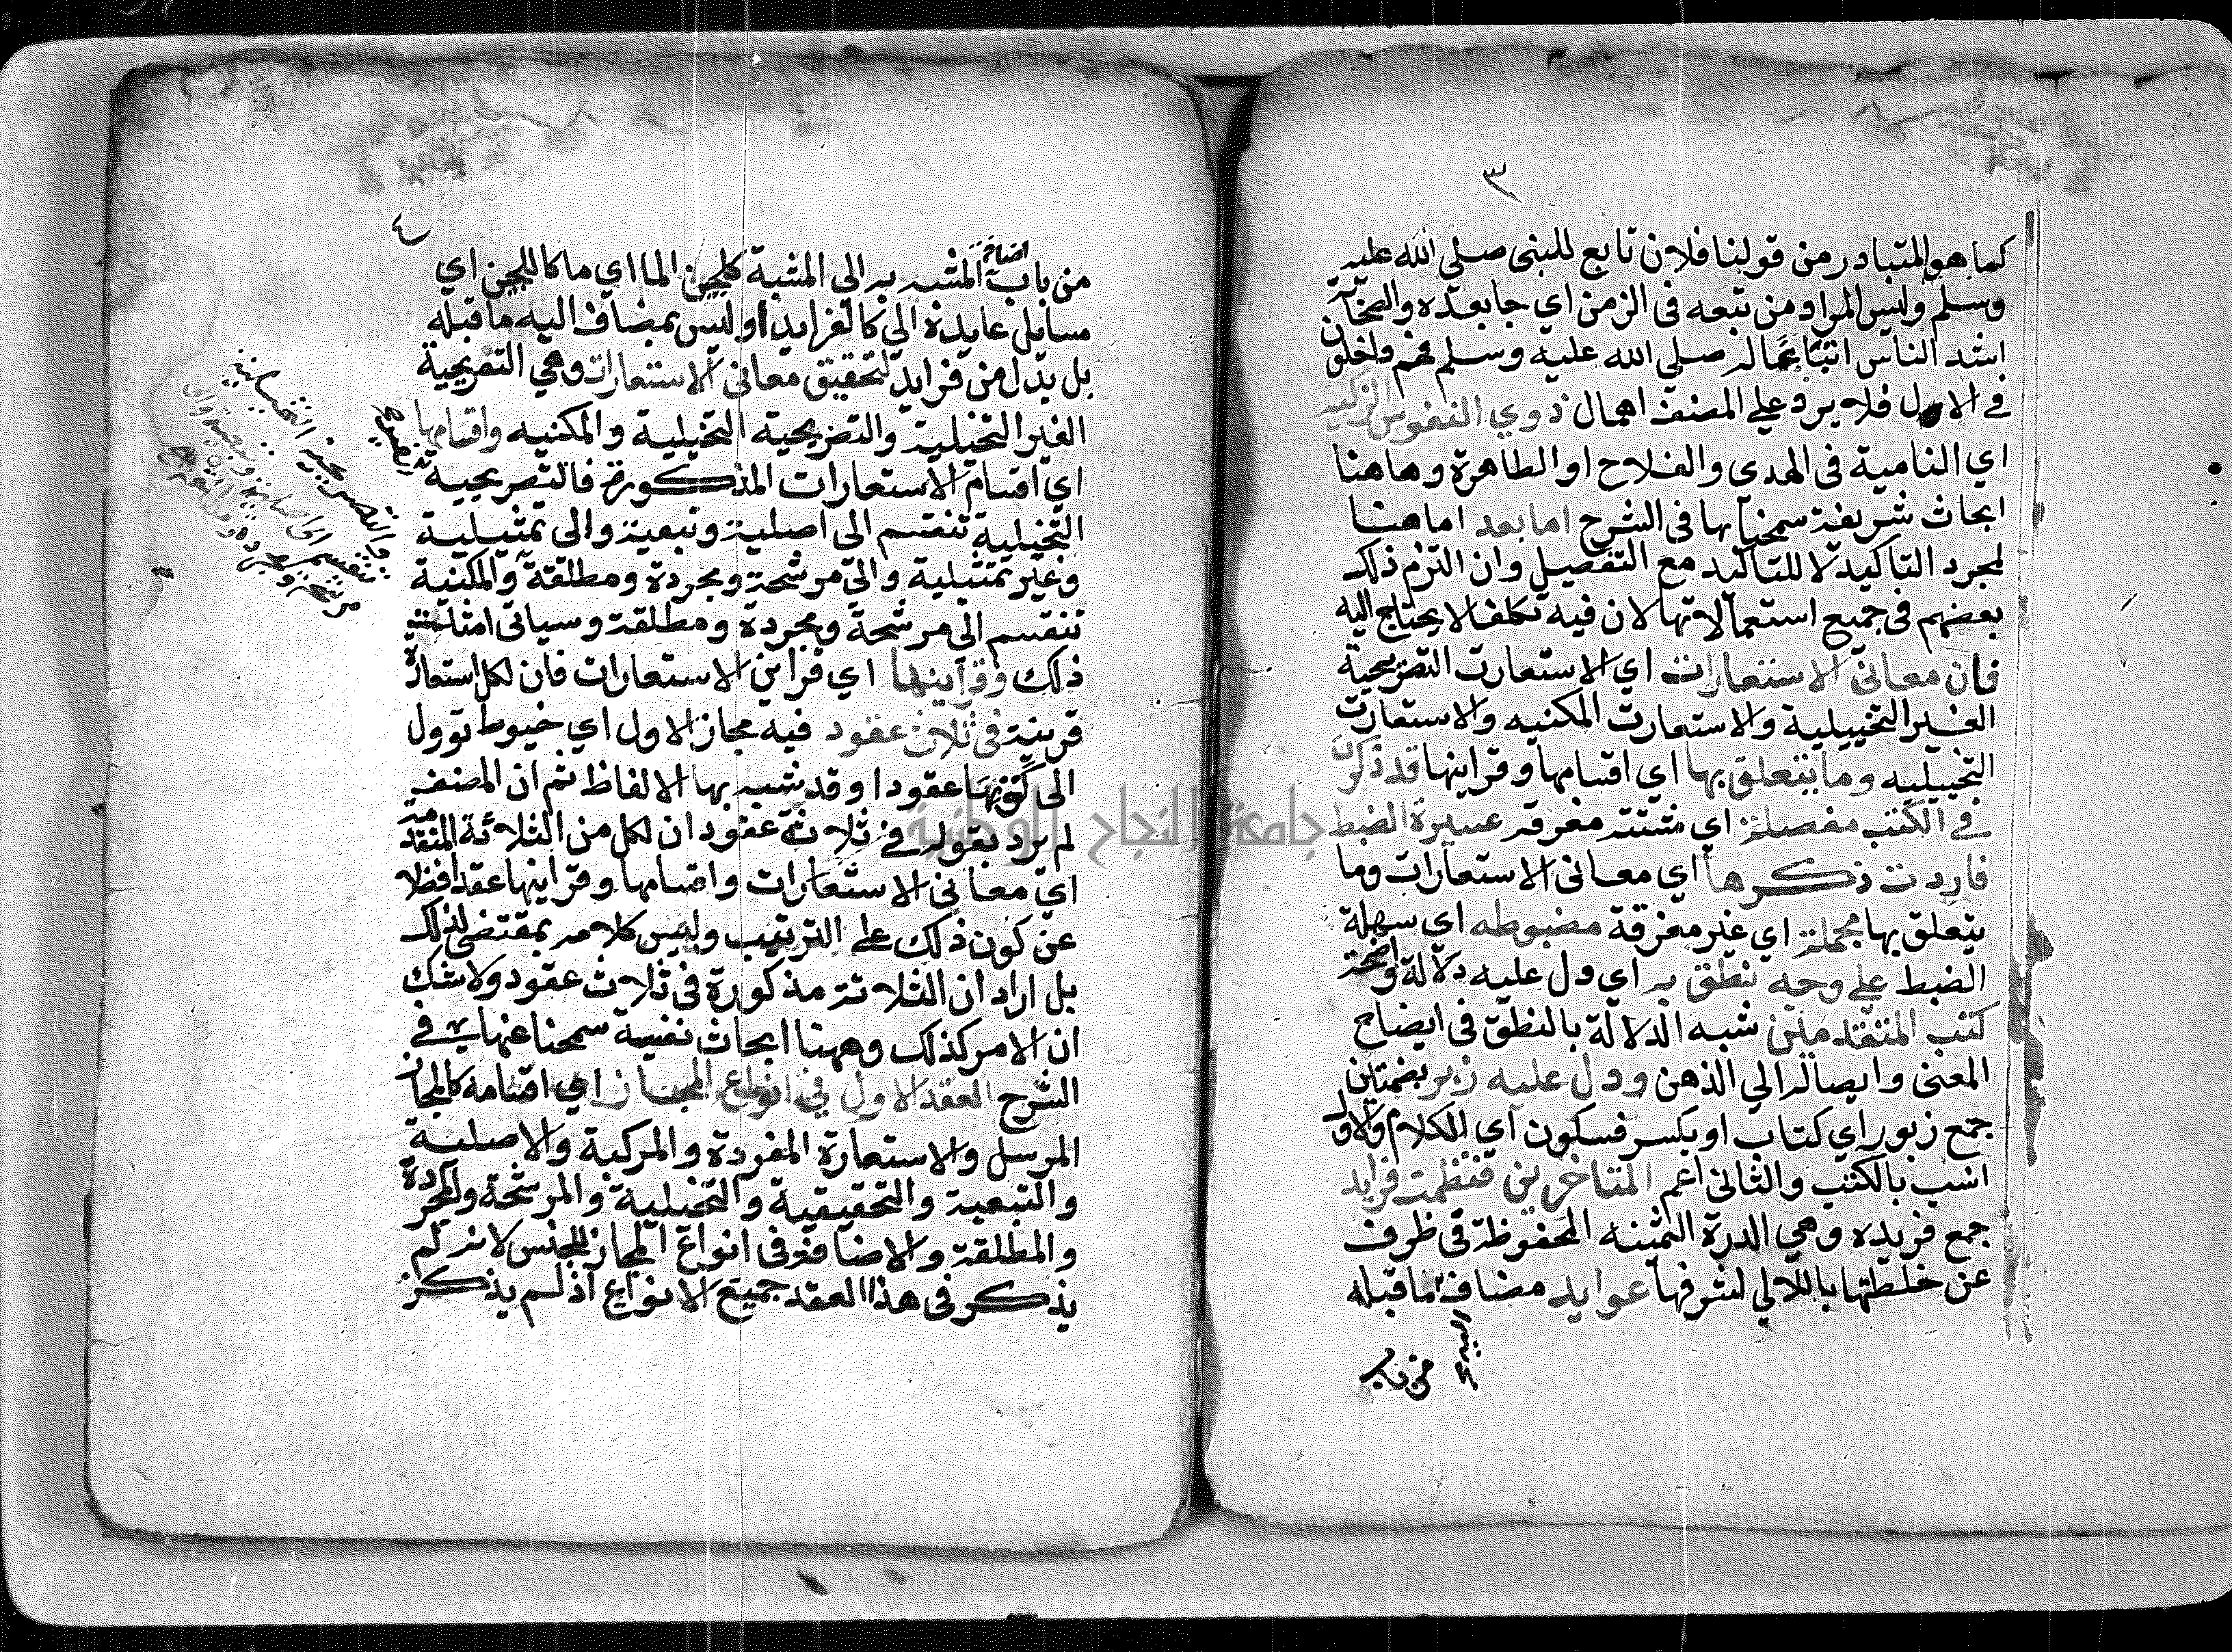 ٣
كما هو المتبادر من قولنا فلان تابع للنبى صلي الله عليه
وسلم وليس المراد من تبعه فى الزمن اي جا بعده والصحابة
اشد الناس اتباعا له صلي الله عليه وسلم فهم داخلون
في الاول فلا يرد علي المصنف اهمال ذوي النفوس الزكيه
اي النامية فى الهدى والفلاح او الطاهرة وهاهنا
ابحاث شريفة سمحنا بها فى الشرح اما بعد اما هنا
لمجرد التاكيد لا للتاكيد مع التفصيل وان التزم ذلك
بعضهم فى جميع استعمالاتها لان فيه تكلفا لا يحتاج اليه
فان معانى الاستعارات اي الاستعارت التصريحية
الغير التخييلية والاستعارت المكنيه والاستعارت
التخييليه وما يتعلق بها اي اقسامها وقراينها قد ذكرت
في الكتب مفصلة اي مشتتة مفرقة عسيرة الضبط
فاردت ذكرها اي معانى الاستعارات وما
يتعلق بها مجملة اي غير مفرقة مضبوطه اي سهلة
الضبط علي وجه نطق به اي دل عليه دلالة واضحة
كتب المتقدمين شبه الدلالة بالنطق فى ايضاح
المعنى وايصاله الي الذهن ودل عليه زبر بضمتين
جمع زبور اي كتاب او بكسر فسكون اي الكلام والاول
انسب بالكتب والثانى اعم المتاخرين فنظمت فرايد
جمع فريده وهي الدرة الثمينه المحفوظة فى ظرف
عن خلطتها باللالي لشرفها عوايد مضاف لما قبله
اليه
من باب
٤
من باب اضافة المشبه به الى المشبة كلجين الما اي ما كاللجين اي
مسايل عايدة الي كالفرايد او ليس بمضاف اليه ما قبله
بل بدل من فرايد لتحقيق معانى الاستعارات وهي التصريحية
الغير التخيلية والتصريحية التخيلية والمكنيه واقسامها
اي اقسام الاستعارات المذكورة فالتصريحيه
التخيلية تنقسم الى اصلية وتبعية والى تمثيلية
وغير تمثيلية والي مرشحة ومجردة ومطلقة والمكنية
تنقسم الى مرشحة ومجردة ومطلقة وسياتى امثلة
ذلك وقراينها اي قراين الاستعارات فان لكل استعارة
قرينة فى ثلاث عقود فيه مجاز الاول اي خيوط توول
الى كونها عقودا وقد شبه بها الالفاظ ثم ان المصنف
لم يرد بقوله في ثلاثة عقود ان لكل من الثلاثة المتقدمة
اي معانى الاستعارات واقسامها وقراينها عقدا فضلا
عن كون ذلك علي الترتيب وليس كلامه بمقتضى لذلك
بل اراد ان الثلاثة مذكورة فى ثلاث عقود ولا شك
ان الامر كذلك وههنا ابحاث نفيسة سمحنا عنها في
الشرح العقد الاول في انواع المجاز اي اقسامه كالمجاز
المرسل والاستعارة المفردة والمركبة والاصلية
والتبعية والتحقيقية والتخيلية والمرشحة والمجردة
والمطلقة والاضافة فى انواع المجاز للجنس لانه لم
يذكر فى هذا العقد جميع الانواع اذ لم يذكر
جامعة النجاح الوطنية